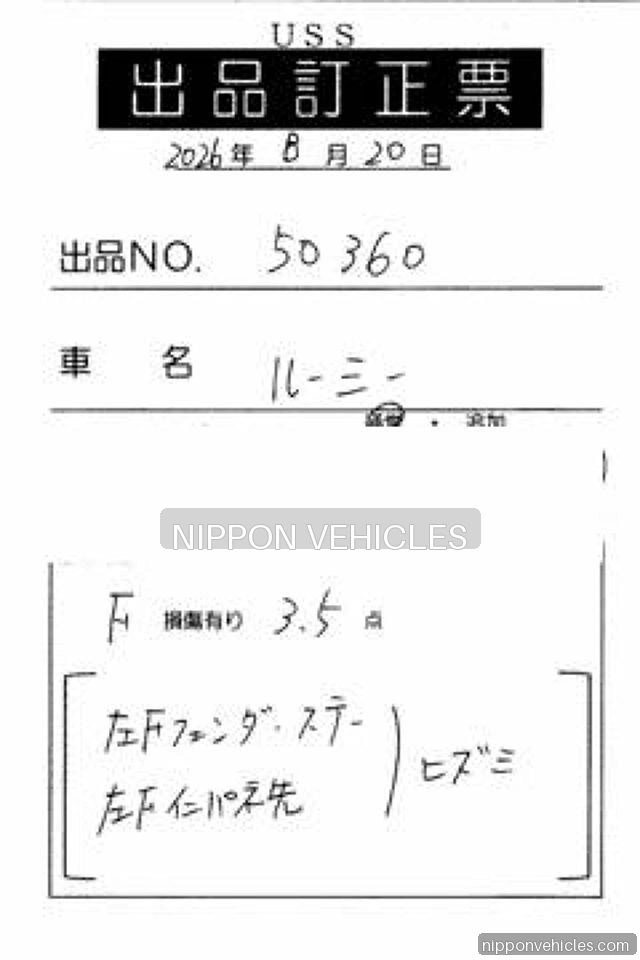 USS
出品訂正票
2026年 8月20日
出品NO. 50360
車 名 ルーミー
・ 追加
NIPPON VEHICLES
F 損傷有り 3.5 点
左Fフェンダ・ステー
左Fインパネ先
ヒズミ
nipponvehicles.com